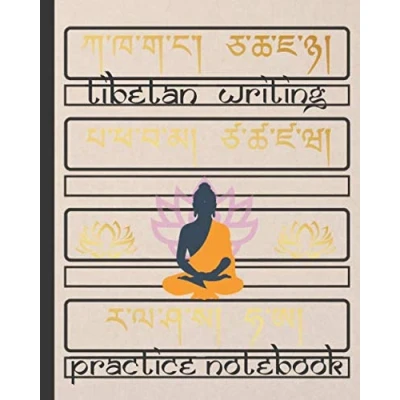 ཀ་ཁ་ག་ང། ཅ་ཆ་ཇ་ཉ།
tibetan writing
པ་ཕ་བ་མ། ཙ་ཚ་ཛ་ཝ།
ར་ལ་ཤ་ས། ཧ་ཨ།
practice notebook